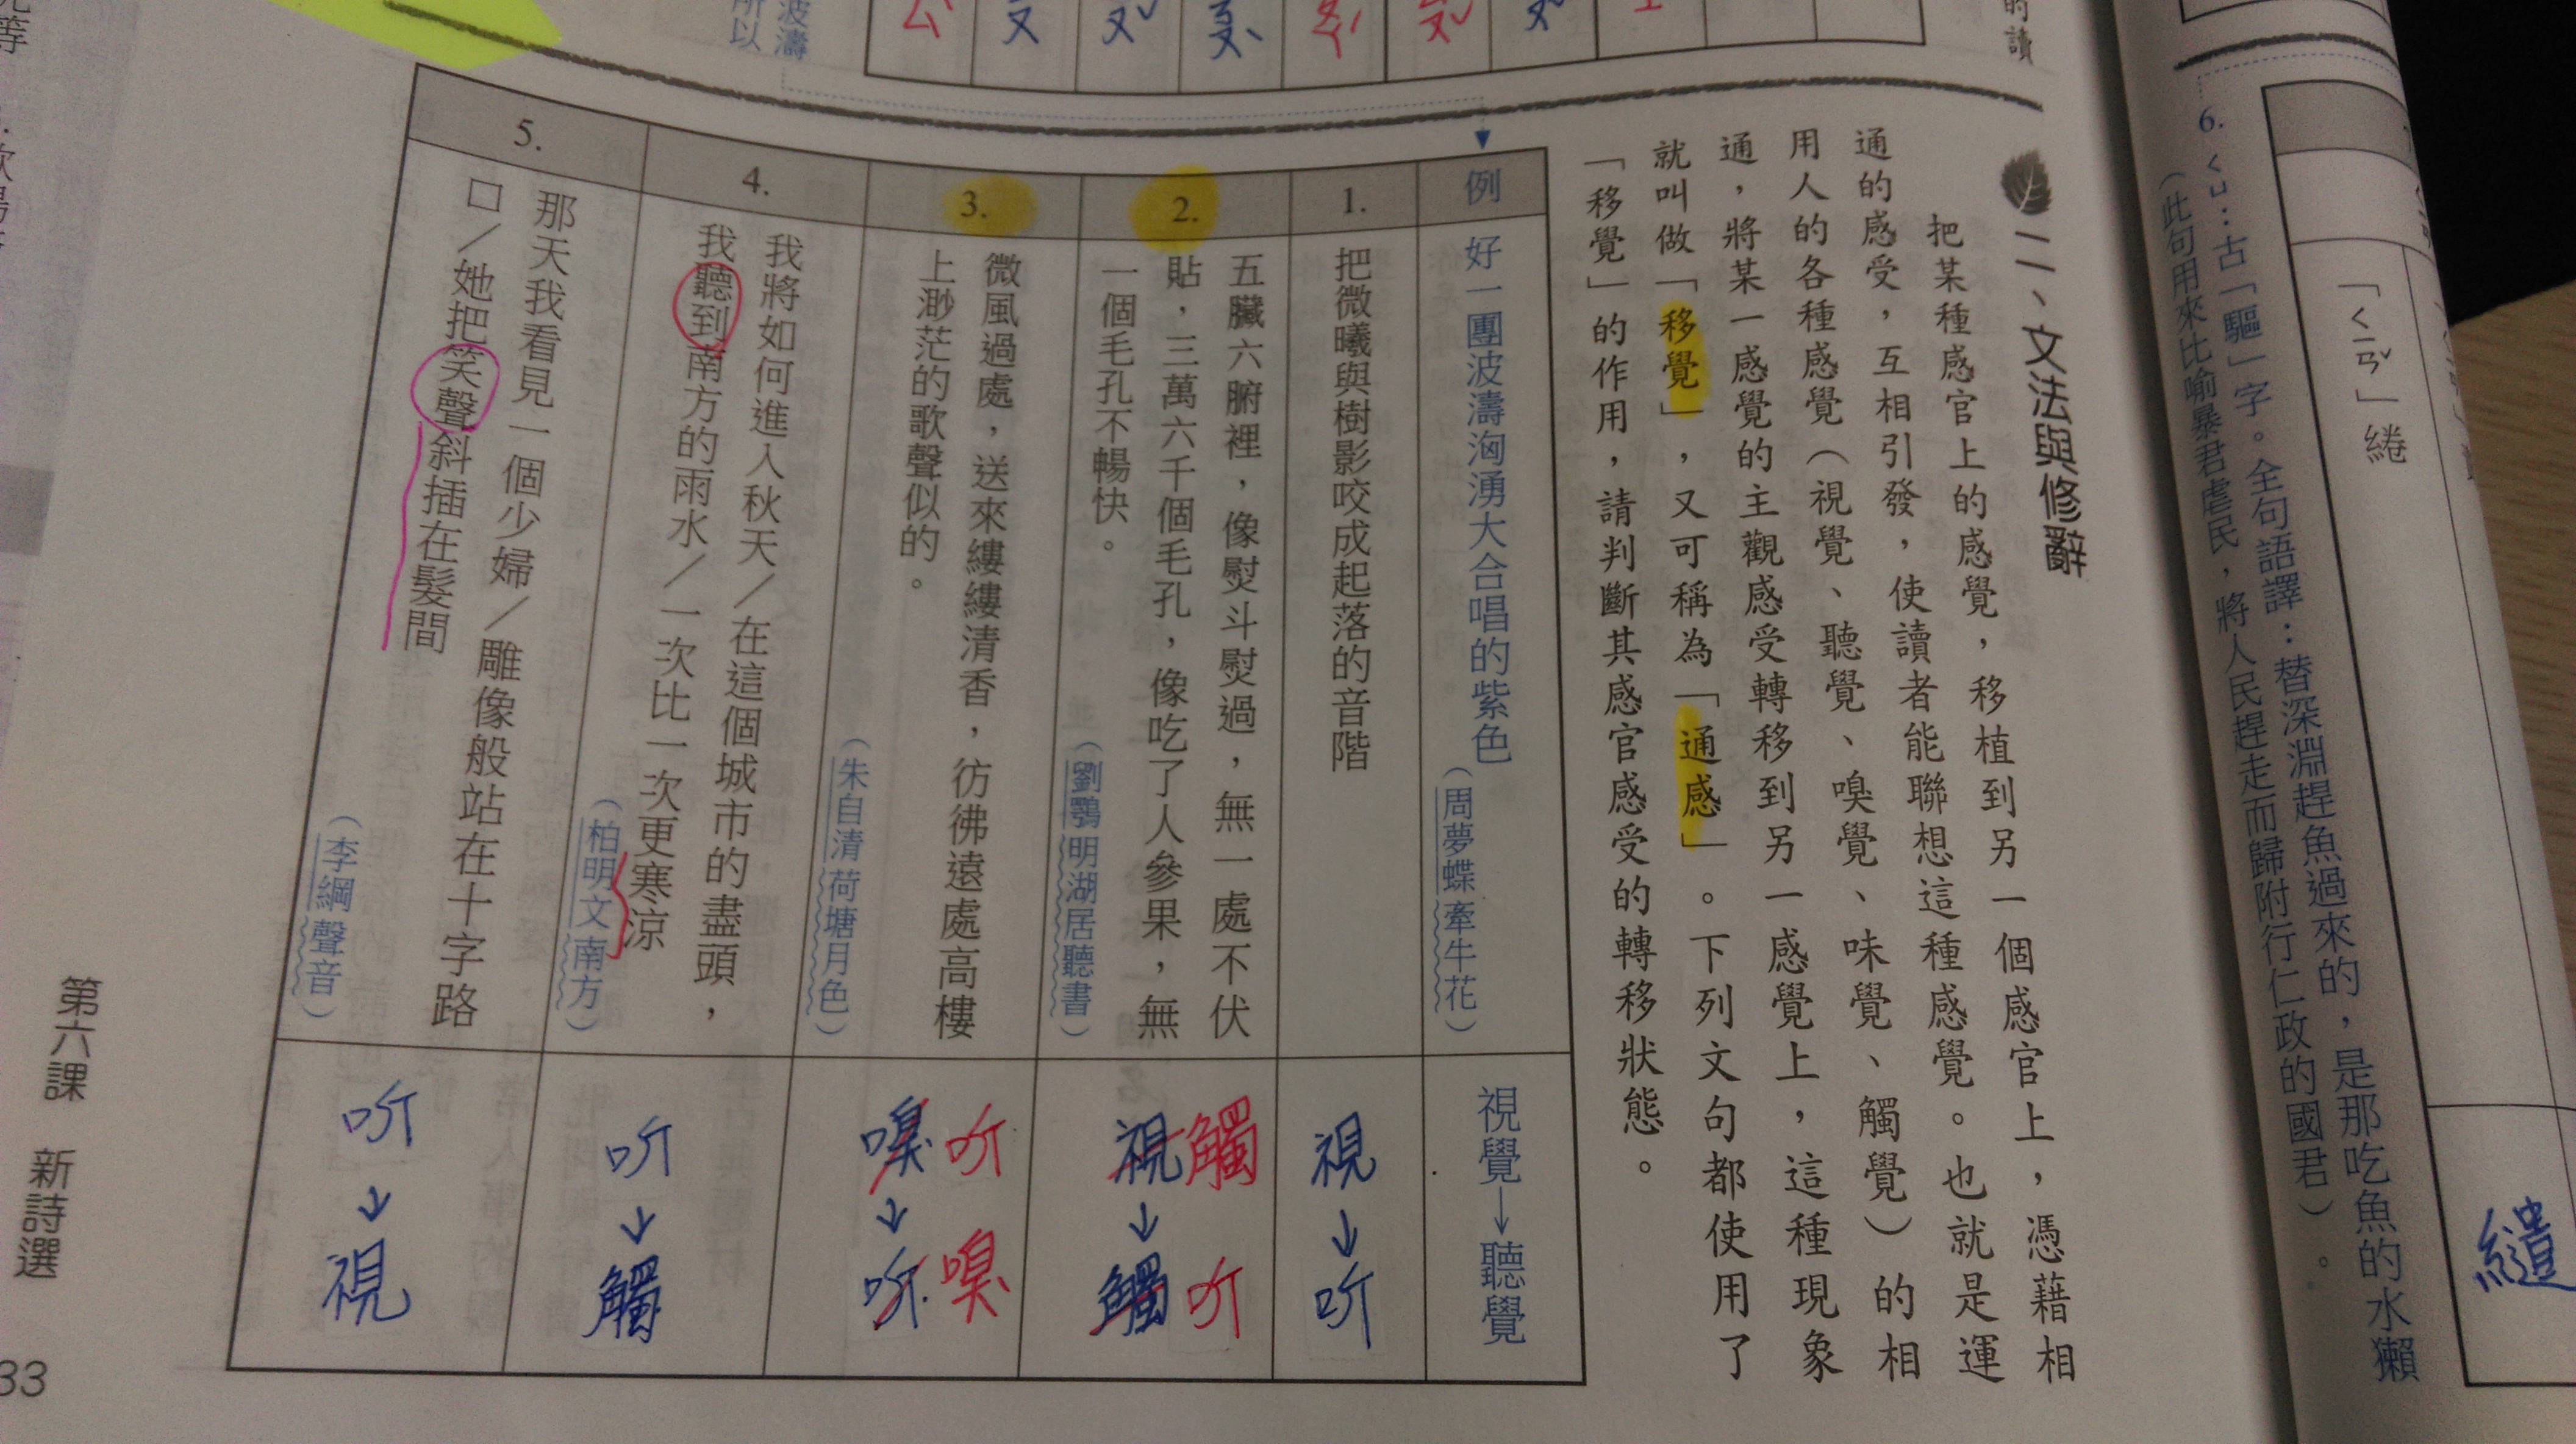 的讀
二、文法與修辭
把某種感官上的感覺，移植到另一個感官上，憑藉相
通的感受，互相引發，使讀者能聯想這種感覺。也就是運
用人的各種感覺（視覺、聽覺、嗅覺、味覺、觸覺）的相
通，將某一感覺的主觀感受轉移到另一感覺上，這種現象
就叫做「移覺」，又可稱為「通感」。下列文句都使用了
「移覺」的作用，請判斷其感官感受的轉移狀態。
例
好一團波濤洶湧大合唱的紫色
（周夢蝶牽牛花）
視覺→聽覺
1.
把微曦與樹影咬成起落的音階
視→听
2.
五臟六腑裡，像熨斗熨過，無一處不伏
貼，三萬六千個毛孔，像吃了人參果，無
一個毛孔不暢快。
（劉鶚明湖居聽書）
觸 听
視→觸
3.
微風過處，送來縷縷清香，彷彿遠處高樓
上渺茫的歌聲似的。
（朱自清荷塘月色）
听 嗅
嗅→听
4.
我將如何進入秋天／在這個城市的盡頭，
我聽到南方的雨水／一次比一次更寒涼
（柏明文南方）
听→觸
5.
那天我看見一個少婦／雕像般站在十字路
口／她把笑聲斜插在髮間
（李綱聲音）
听→視
波濤
所以
第六課 新詩選
33
「ㄑㄧㄢˇ」綣
繾
6.ㄑㄩ：古「驅」字。全句語譯：替深淵趕魚過來的，是那吃魚的水獺
（此句用來比喻暴君虐民，將人民趕走而歸附行仁政的國君）。